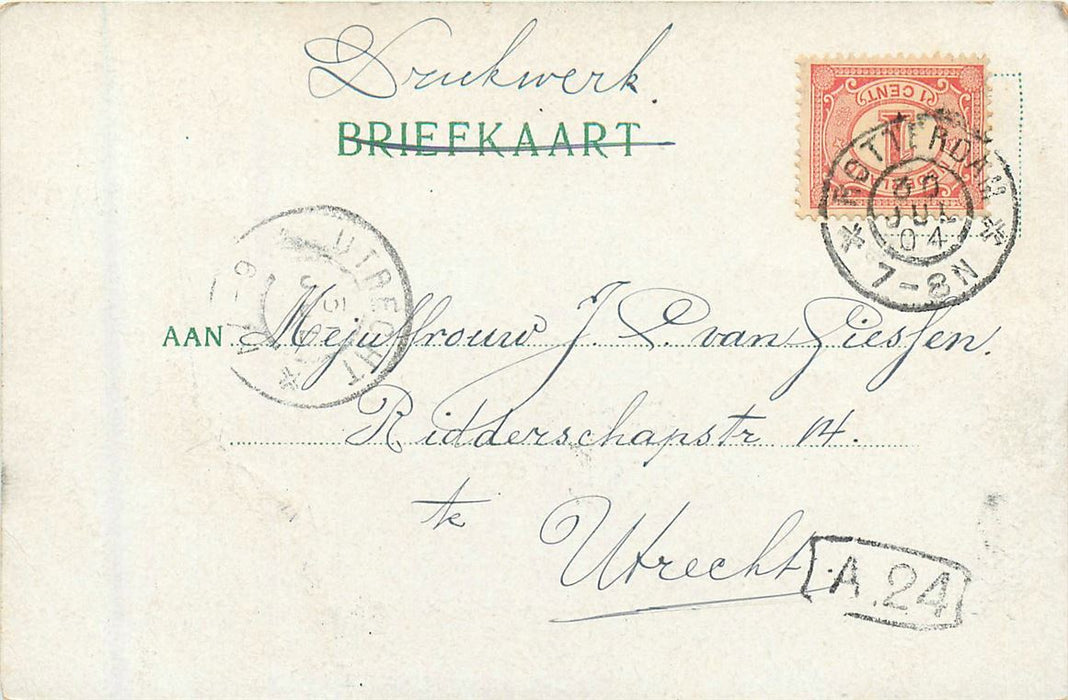 Drukwerk
BRIEFKAART
1 CENT
1
ROTTERDAM
30
JUL
04
7-8N
UTRECHT
AAN Mejuffrouw J. C. van Giessen.
Ridderschapstr 14.
te
Utrecht.
A.24